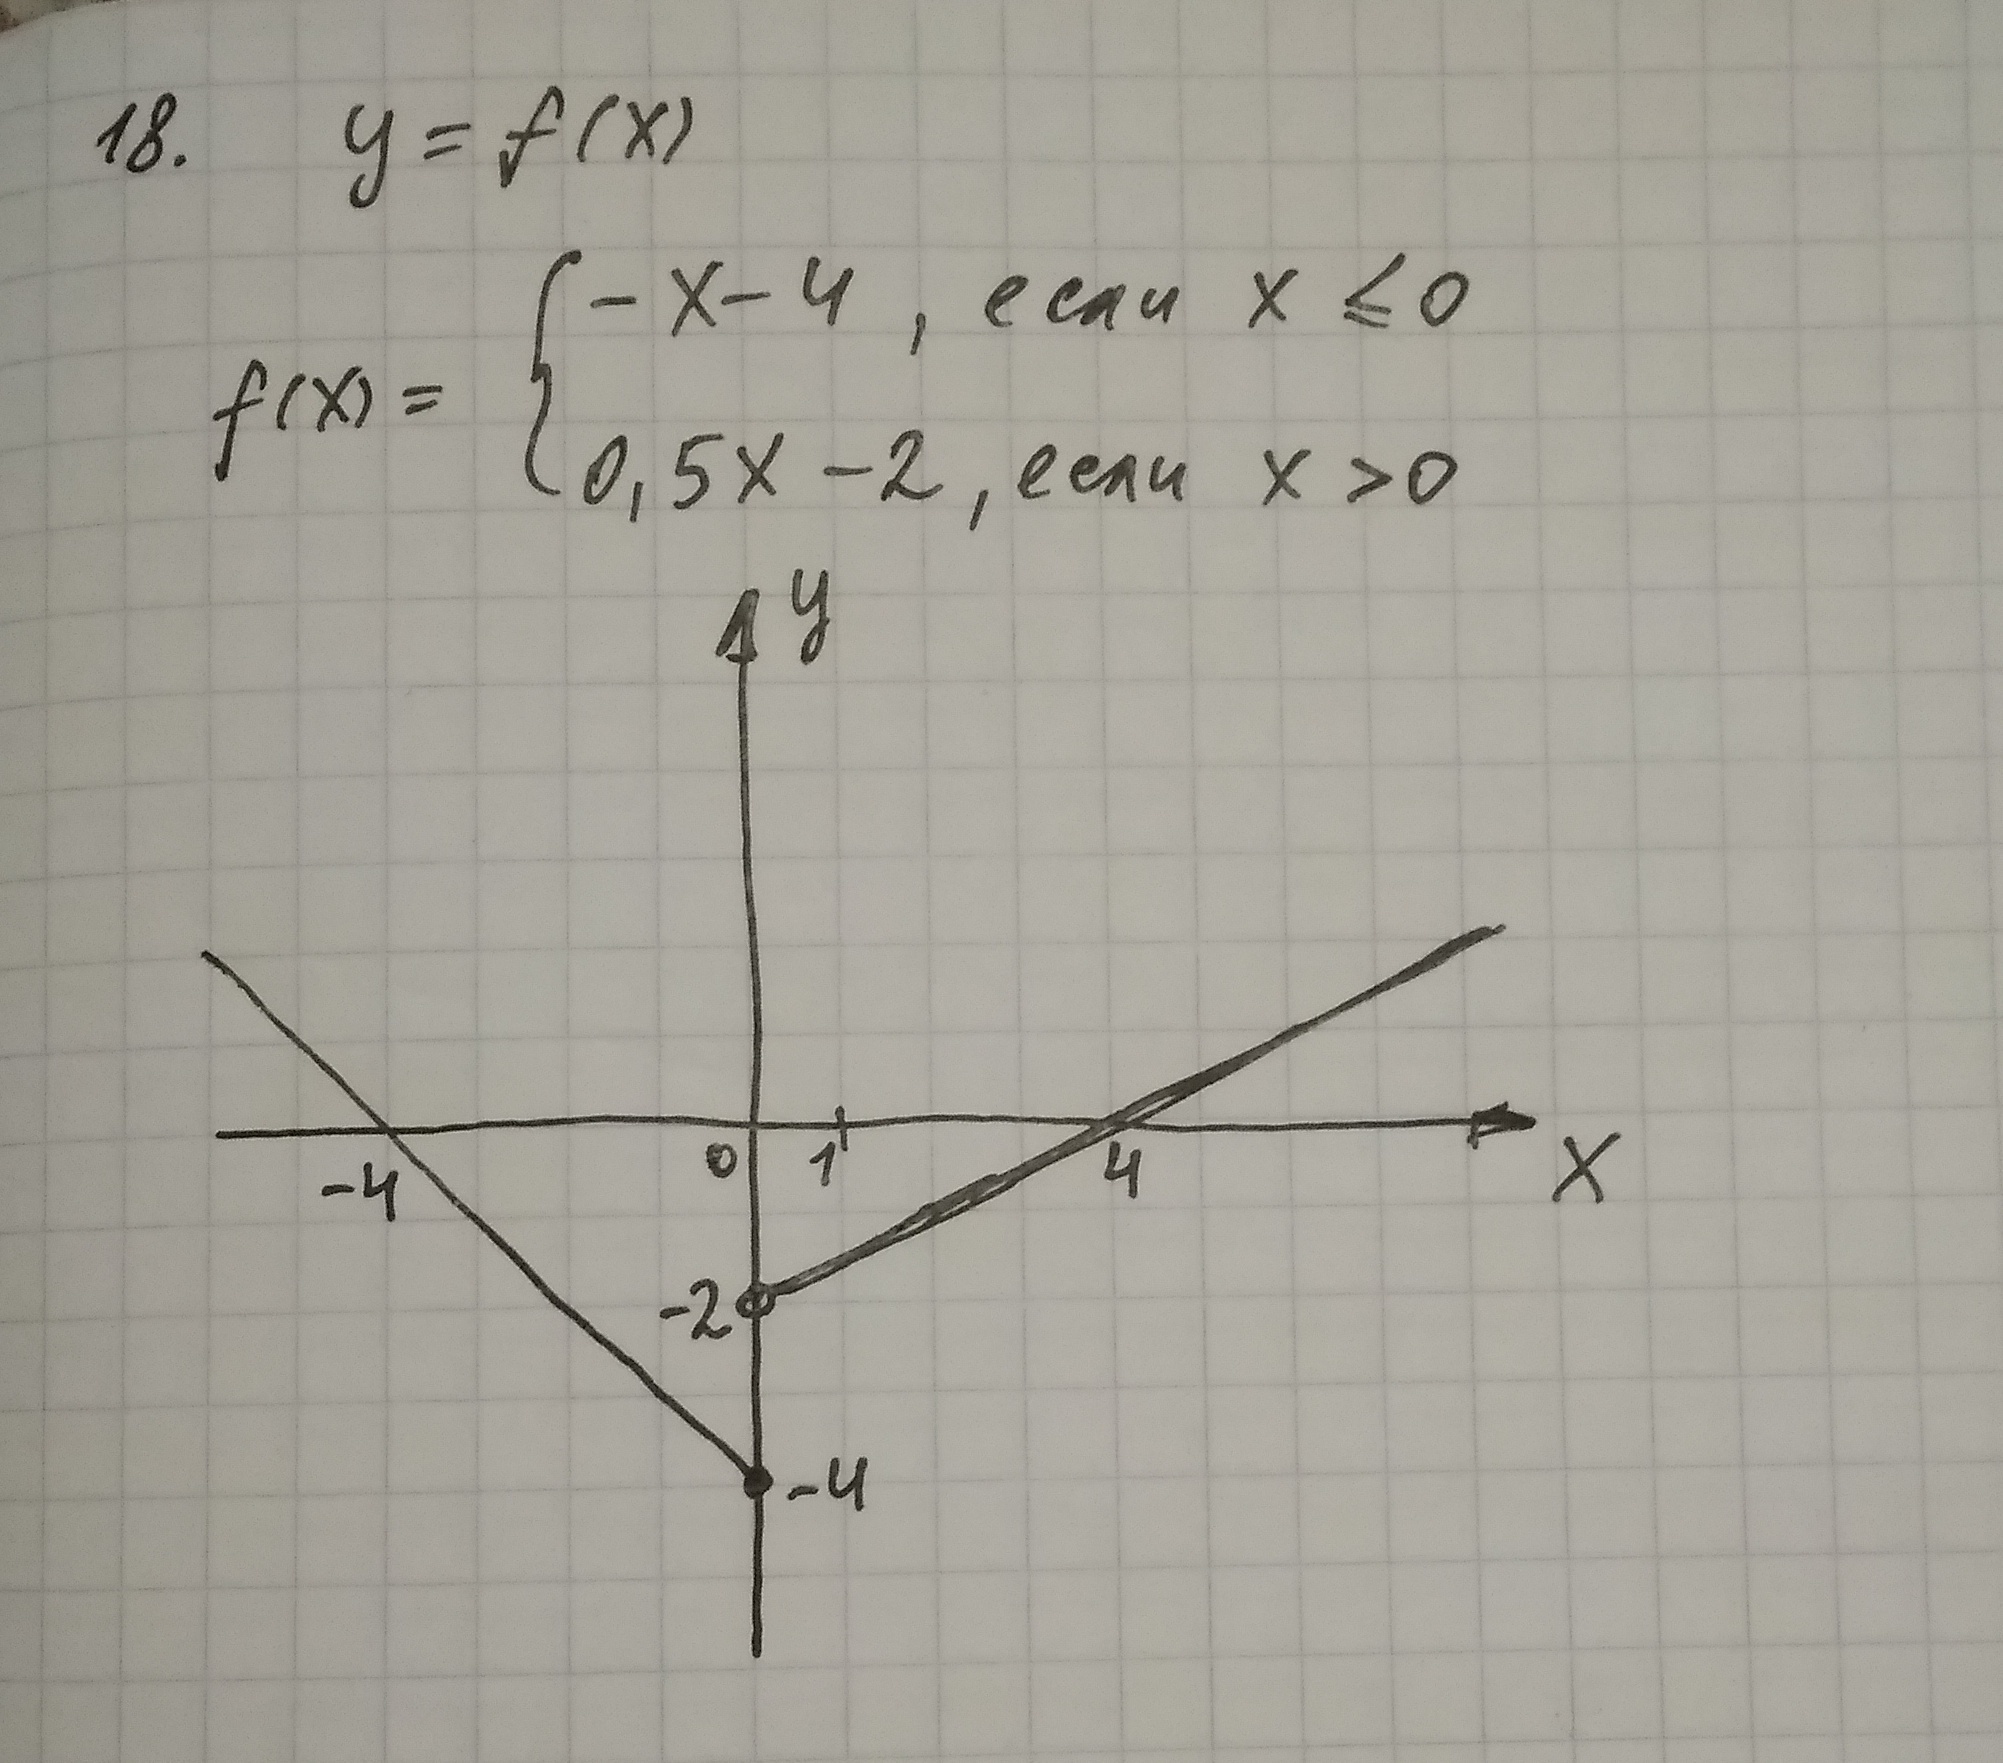 18. y = f(x)
-x-4, если x ≤ 0
f(x) =
0,5x-2, если x > 0
y
-4 0 1 4 x
-2
-4